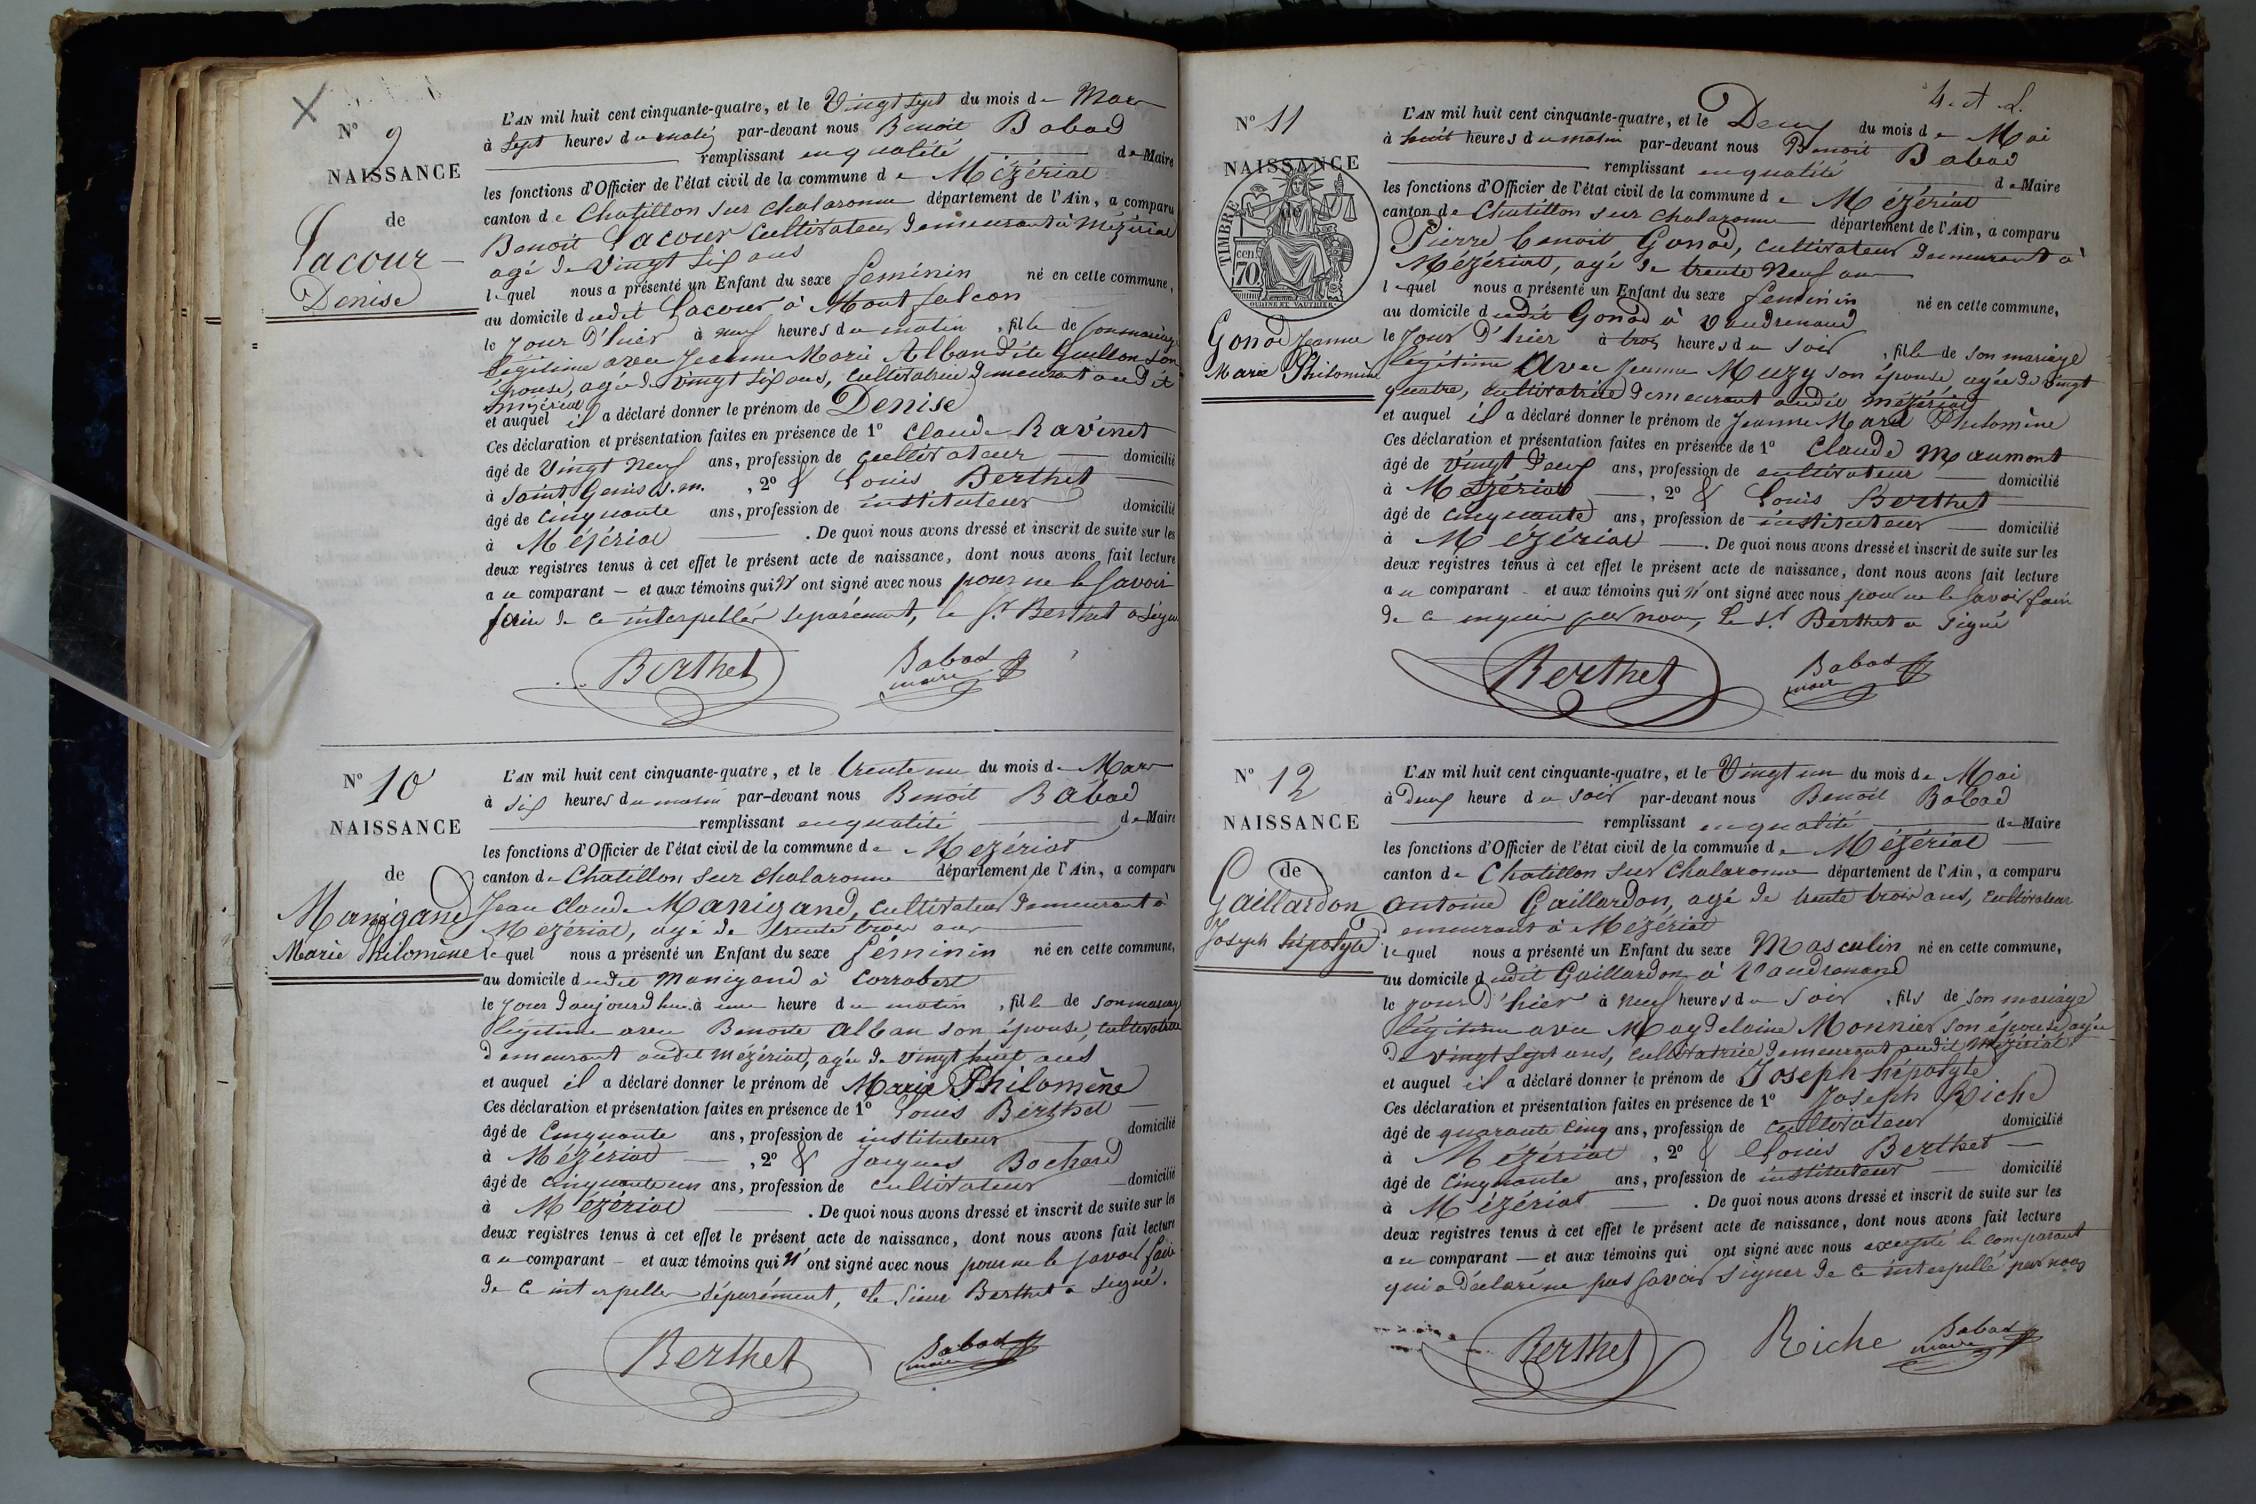 N° 9
NAISSANCE
de
Lacour
Denise
L'AN mil huit cent cinquante-quatre, et le Vingt sept du mois de Mars
à sept heures du matin par-devant nous Benoit Babad
remplissant en qualité de Maire
les fonctions d'Officier de l'état civil de la commune de Mézériat
canton de Chatillon sur chalaronne département de l'Ain, a comparu
Benoit Lacour cultivateur demeurant à Mézériat
agé de vingt six ans
lequel nous a présenté un Enfant du sexe feminin né en cette commune,
au domicile dudit Lacour à Montfalcon
le jour d'hier à neuf heures du matin, fille de son mariage
légitime avec Jeanne Marie Alban dite Guillon son
épouse, agée de vingt six ans, cultivatrice demeurant audit
mézériat
et auquel il a déclaré donner le prénom de Denise
Ces déclaration et présentation faites en présence de 1° Claude Ravinet
âgé de vingt neuf ans, profession de cultivateur domicilié
à Saint Genis s. m. , 2° & Louis Berthet
âgé de cinquante ans, profession de instituteur domicilié
à Mézériat . De quoi nous avons dressé et inscrit de suite sur les
deux registres tenus à cet effet le présent acte de naissance, dont nous avons fait lecture
au comparant et aux témoins qui n'ont signé avec nous pour ne le savoir
faire de ce interpellés séparément, le Sr Berthet a signé
Berthet Babad
maire
N° 10
NAISSANCE
de
Manigand
Marie Philomène
L'AN mil huit cent cinquante-quatre, et le trente un du mois de Mars
à six heures du matin par-devant nous Benoit Babad
remplissant en qualité de Maire
les fonctions d'Officier de l'état civil de la commune de Mézériat
canton de Chatillon sur chalaronne département de l'Ain, a comparu
Jean Claude Manigand, cultivateur demeurant à
Mézériat, agé de trente trois ans
lequel nous a présenté un Enfant du sexe féminin né en cette commune,
au domicile dudit Manigand à Corrobert
le jour d'aujourd'hui à une heure du matin, fille de son mariage
légitime avec Benoite Alban son épouse, cultivatrice
demeurant audit mézériat, agée de vingt huit ans
et auquel il a déclaré donner le prénom de Marie Philomène
Ces déclaration et présentation faites en présence de 1° Louis Berthet
âgé de Cinquante ans, profession de instituteur domicilié
à Mézériat , 2° & Jacques Bochard
âgé de cinquante un ans, profession de cultivateur domicilié
à Mézériat . De quoi nous avons dressé et inscrit de suite sur les
deux registres tenus à cet effet le présent acte de naissance, dont nous avons fait lecture
au comparant et aux témoins qui n'ont signé avec nous pour ne le savoir faire
de ce interpellés séparément, le Sieur Berthet a signé.
Berthet Babad
maire
N° 11
NAISSANCE
de
TIMBRE
70 cen
OUDINE ET VAUTHIER
Gonod Jeanne
Marie Philomène
L'AN mil huit cent cinquante-quatre, et le Deux du mois de Mai
à huit heures du matin par-devant nous Benoit Babad
remplissant en qualité de Maire
les fonctions d'Officier de l'état civil de la commune de Mézériat
canton de Chatillon sur chalaronne département de l'Ain, a comparu
Pierre Benoit Gonod, cultivateur demeurant à
Mézériat, agé de trente neuf ans
lequel nous a présenté un Enfant du sexe feminin né en cette commune,
au domicile dudit Gonod à Vaudrenand
le jour d'hier à trois heures du soir, fille de son mariage
légitime avec Jeanne Muzy son épouse agée de vingt
quatre, cultivatrice demeurant audit mézériat
et auquel il a déclaré donner le prénom de Jeanne Marie Philomène
Ces déclaration et présentation faites en présence de 1° Claude Maumont
âgé de vingt deux ans, profession de cultivateur domicilié
à Mézériat , 2° & Louis Berthet
âgé de cinquante ans, profession de instituteur domicilié
à Mézériat . De quoi nous avons dressé et inscrit de suite sur les
deux registres tenus à cet effet le présent acte de naissance, dont nous avons fait lecture
au comparant et aux témoins qui n'ont signé avec nous pour ne le savoir faire
de ce enquis par nous, Le Sr Berthet a signé
Berthet Babad
maire
N° 12
NAISSANCE
de
Gaillardon
Joseph hipolyte
L'AN mil huit cent cinquante-quatre, et le Vingt un du mois de Mai
à Deux heure du soir par-devant nous Benoit Babad
remplissant en qualité de Maire
les fonctions d'Officier de l'état civil de la commune de Mézériat
canton de Chatillon sur Chalaronne département de l'Ain, a comparu
antoine Gaillardon, agé de trente trois ans, cultivateur
demeurant à Mézériat
lequel nous a présenté un Enfant du sexe Masculin né en cette commune,
au domicile dudit Gaillardon à Vaudrenand
le jour d'hier à neuf heures du soir, fils de son mariage
légitime avec Magdelaine Monnier son épouse, agée
de vingt sept ans, cultivatrice demeurant audit Mézériat
et auquel il a déclaré donner le prénom de Joseph hipolyte
Ces déclaration et présentation faites en présence de 1° Joseph Riche
âgé de quarante cinq ans, profession de cultivateur domicilié
à Mézériat , 2° & Louis Berthet
âgé de Cinquante ans, profession de instituteur domicilié
à Mézériat . De quoi nous avons dressé et inscrit de suite sur les
deux registres tenus à cet effet le présent acte de naissance, dont nous avons fait lecture
au comparant et aux témoins qui ont signé avec nous excepté le comparant
qui a déclaré ne pas savoir signer de ce interpellé par nous
Berthet Riche Babad
maire